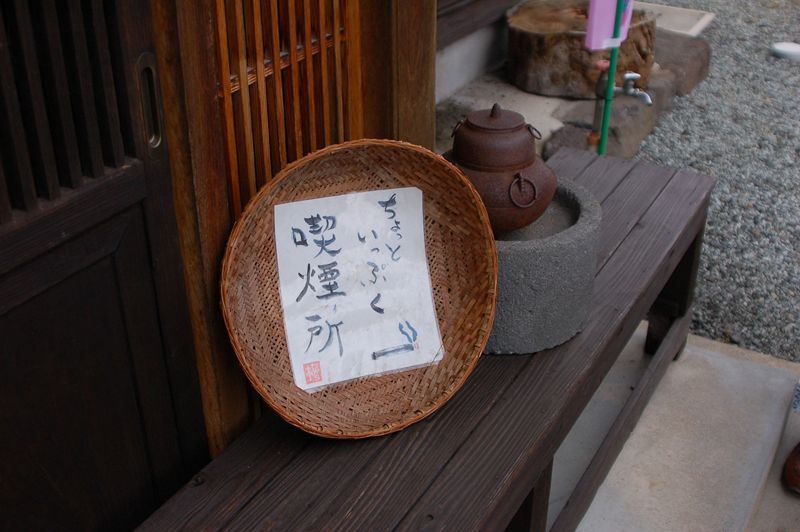 ちょっと
いっぷく
喫煙所